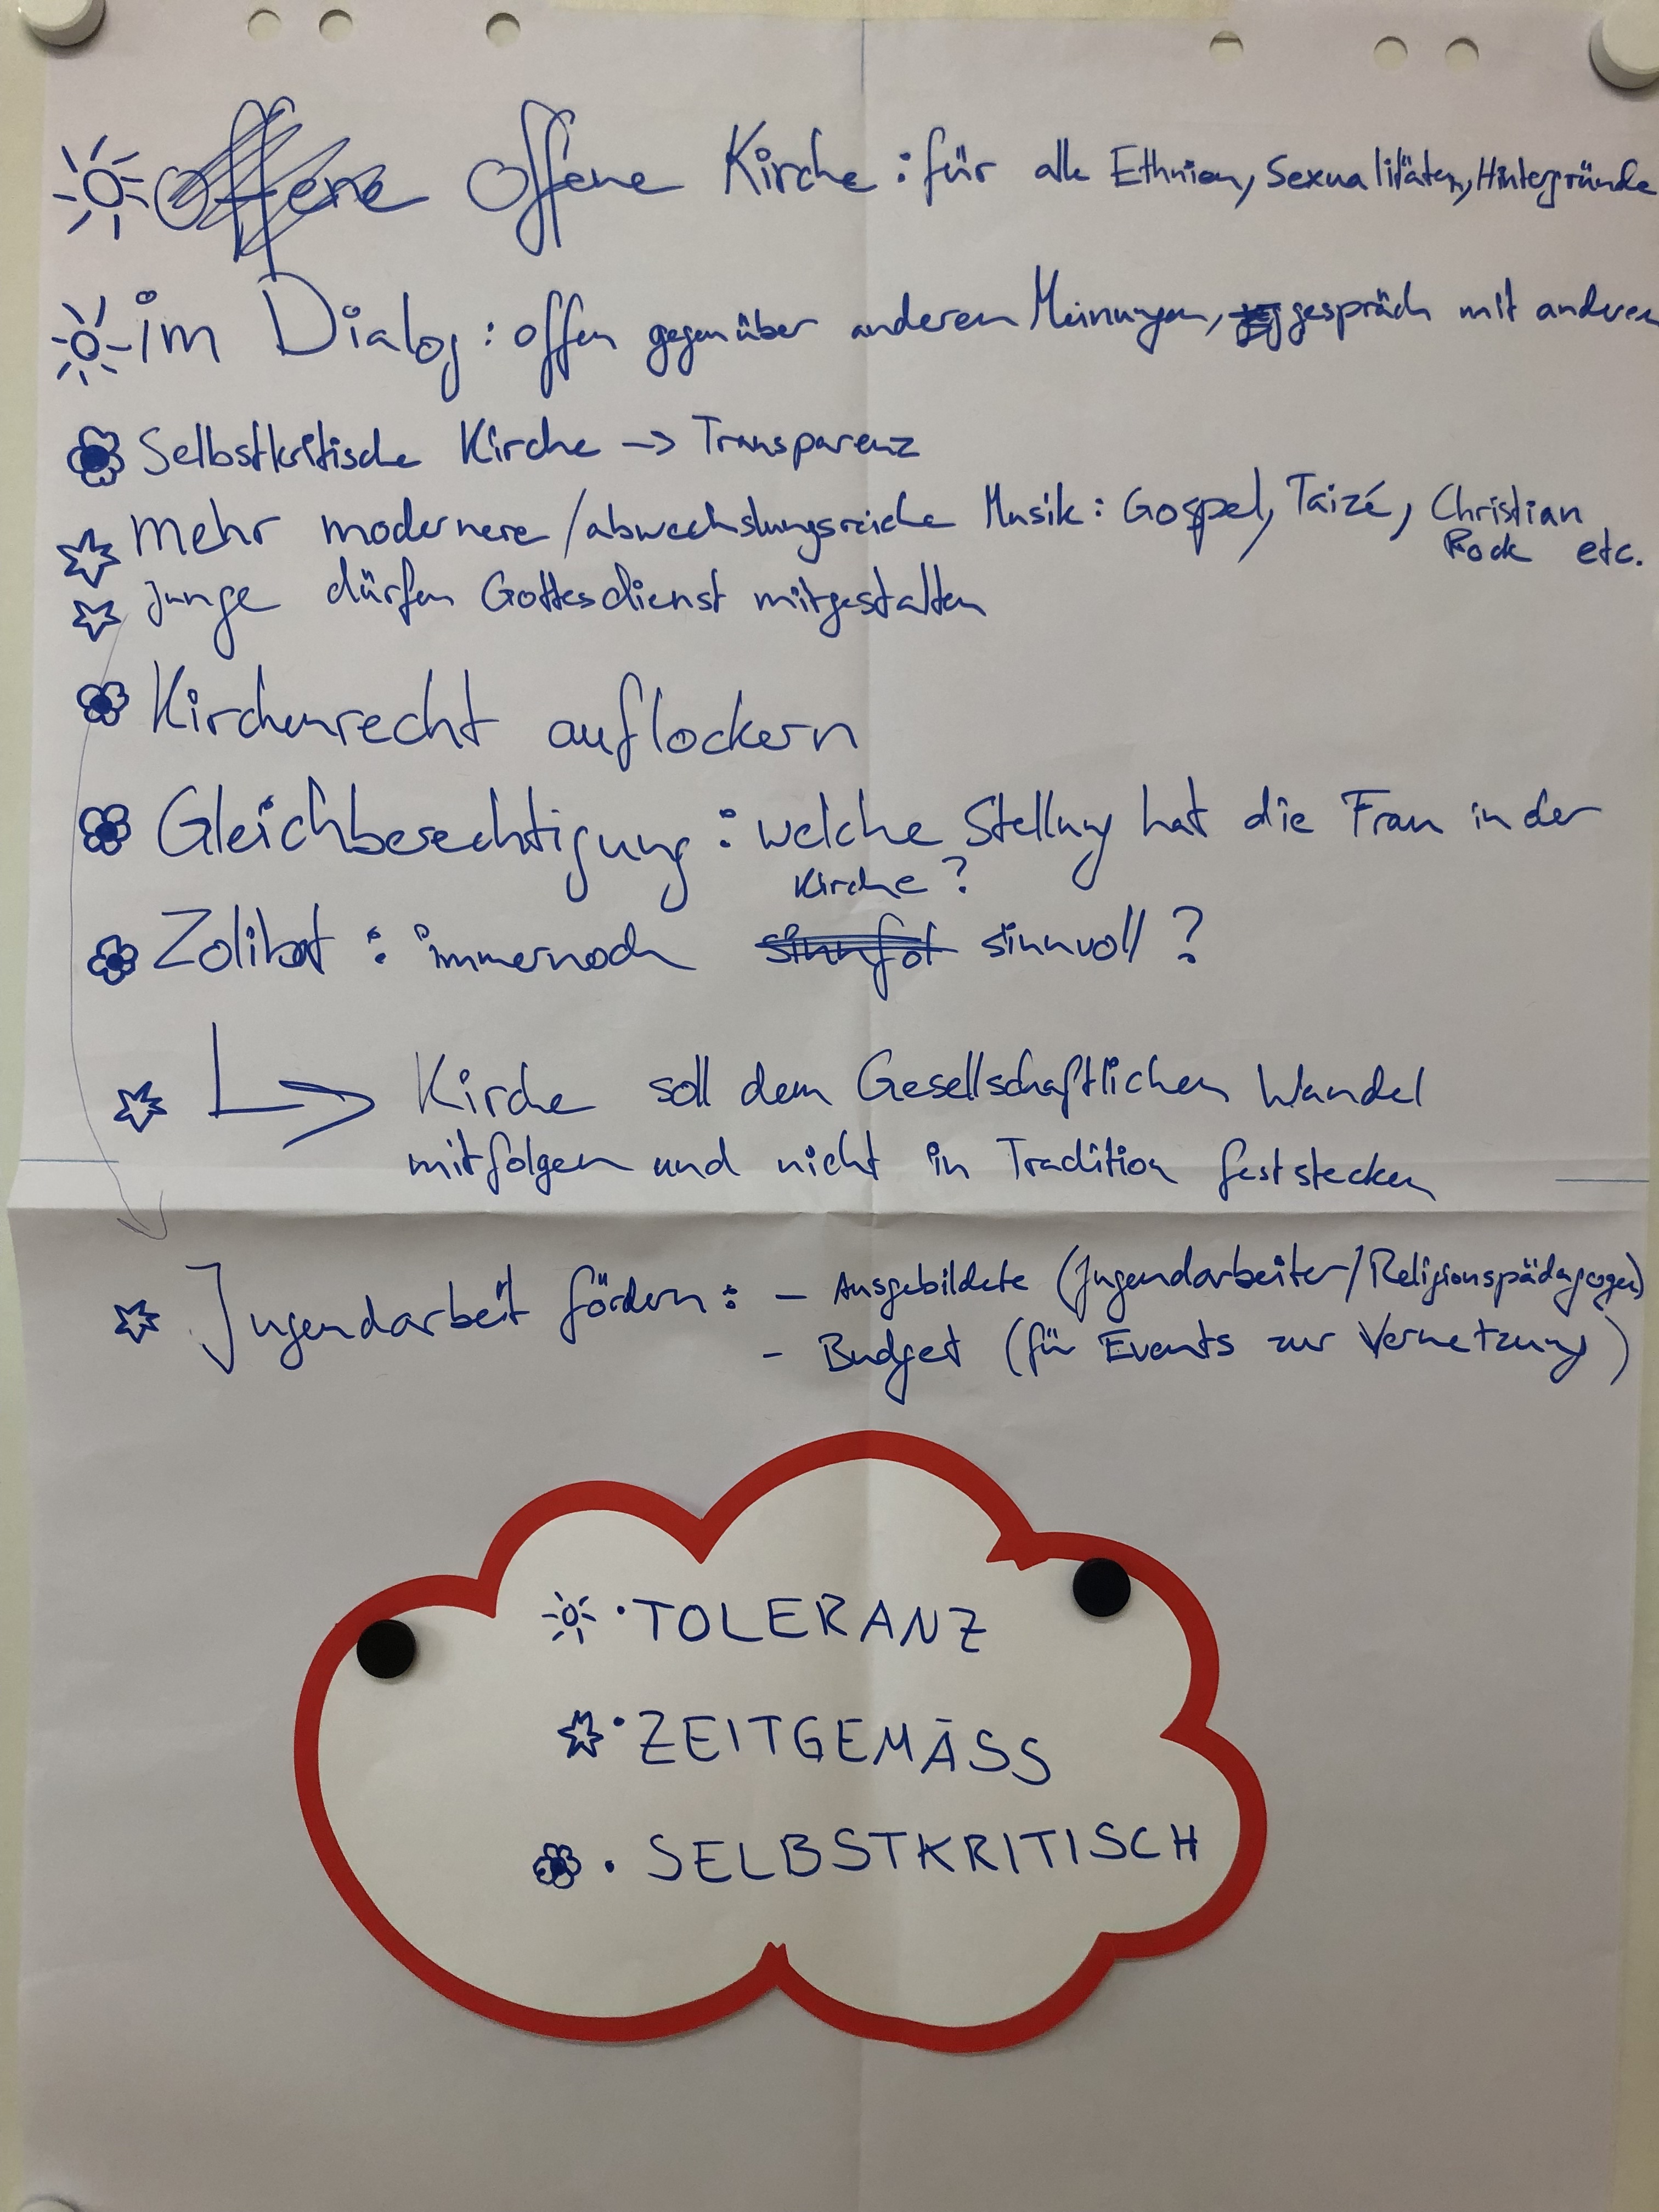 offene offene Kirche : für alle Ethnien, Sexualitäten, Hintergründe
im Dialog : offen gegenüber anderen Meinungen, gespräch mit anderen
Selbstkritische Kirche -> Transparenz
Mehr modernere / abwechslungsreiche Musik : Gospel, Taizé, Christian
Rock etc.
Junge dürfen Gottesdienst mitgestalten
Kirchenrecht auflockern
Gleichberechtigung : welche Stellung hat die Frau in der
Kirche ?
Zolibat : immernoch sinnfol sinnvoll ?
Kirche soll dem Gesellschaftlichen Wandel
mitfolgen und nicht in Tradition feststecken
Jugendarbeit fördern : - Ausgebildete (Jugendarbeiter/Religionspädagogen)
- Budget (für Events zur Vernetzung)
• TOLERANZ
• ZEITGEMÄSS
• SELBSTKRITISCH